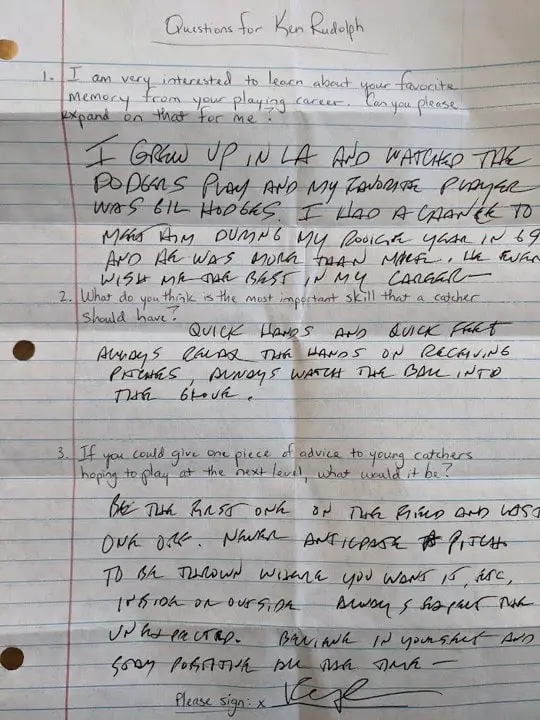 Questions for Ken Rudolph
1. I am very interested to learn about your favorite
memory from your playing career. Can you please
expand on that for me?
I GREW UP IN LA AND WATCHED THE
DODGERS PLAY AND MY FAVORITE PLAYER
WAS GIL HODGES. I HAD A CHANCE TO
MEET HIM DURING MY ROOKIE YEAR IN 69
AND HE WAS MORE THAN NICE. HE EVEN
WISH ME THE BEST IN MY CAREER—
2. What do you think is the most important skill that a catcher
should have?
QUICK HANDS AND QUICK FEET
ALWAYS RELAX THE HANDS ON RECEIVING
PITCHES, ALWAYS WATCH THE BALL INTO
THE GLOVE.
3. If you could give one piece of advice to young catchers
hoping to play at the next level, what would it be?
BE THE FIRST ONE ON THE FIELD AND LAST
ONE OFF. NEVER ANTICPATE PITCH
TO BE THROWN WHERE YOU WANT IT, ETC,
INSIDE OR OUTSIDE ALWAYS EXPECT THE
UNEXPECTED. BELIEVE IN YOURSELF AND
STAY POSITIVE ALL THE TIME—
Please sign: x